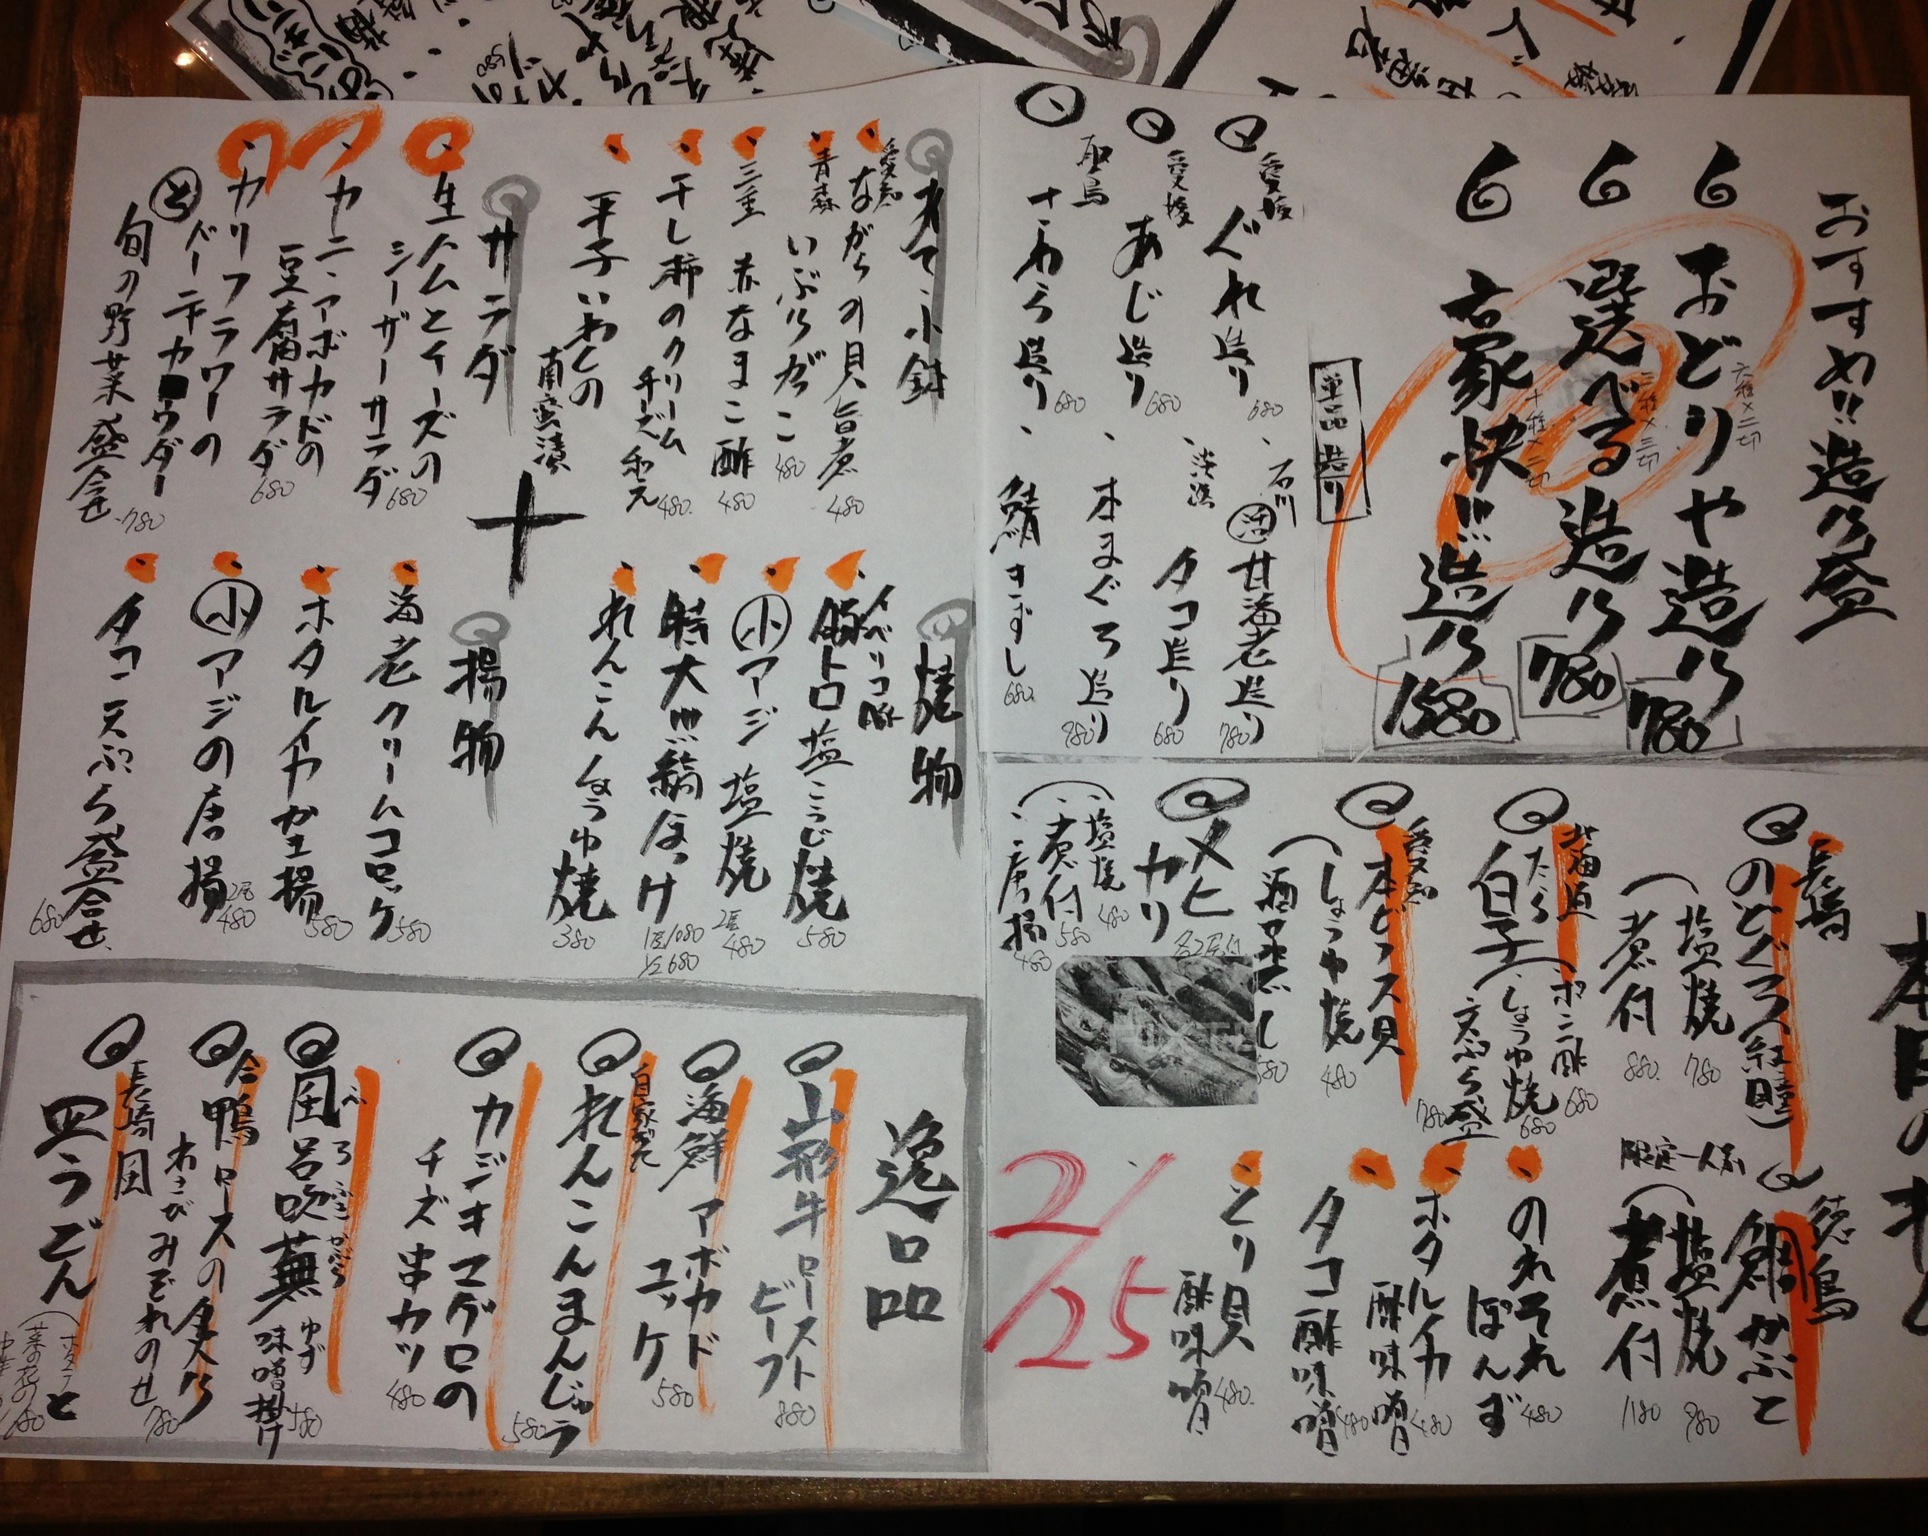 おすすめ!!造り盛
おどりや造り
六種×二切
780
選べる造り
三種×三切
780
豪快!!!造り
十種×二切
1580
単品造り
愛媛
ぐれ造り
680
愛媛
あじ造り
680
さわら造り
680
石川
活甘海老造り
780
淡路
タコ造り
680
本まぐろ造り
980
鯖きずし
680
本日の
長崎
のどぐろ(紅瞳)
塩焼
780
煮付
880
北海道
たら
白子
ポン酢
680
しょうゆ焼
680
天ぷら盛
780
愛知
本ミル貝
しょうゆ焼
480
酒蒸し
580
メヒカリ
各2尾付
塩焼
480
煮付
580
唐揚
480
徳島
鯛かぶと
限定一人前
塩焼
980
煮付
1180
のれそれ
ぽんず
480
ホタルイカ
酢味噌
480
タコ酢味噌
480
とり貝
酢味噌
480
2/25
あて・小鉢
愛知
ながらの貝旨煮
480
青森
いぶりがっこ
480
三重
赤なまこ酢
480
干し柿のクリーム
チーズ和え
480
平子いわしの
南蛮漬
サラダ
生ハムとチーズの
シーザーサラダ
680
カニ、アボカドの
豆腐サラダ
680
カリフラワーの
バーニャカウダー
旬の野菜盛合せ
780
焼物
イベリコ豚
豚トロ塩こうじ焼
580
小アジ塩焼
2尾
480
特大!!!縞ほっけ
1尾1080
1/2 680
れんこんしょうゆ焼
380
揚物
海老クリームコロッケ
580
ホタルイカかき揚
580
小アジの唐揚
2尾
480
タコ天ぷら盛合せ
680
逸品
山形牛ローストビーフ
880
海鮮アボカド
ユッケ
580
自家製
れんこんまんじゅう
580
カジキマグロの
チーズ串カツ
480
風呂吹蕪
ゆず味噌掛け
580
合鴨ロースの炙り
わさびみぞれのせ
780
長崎風
皿うどん